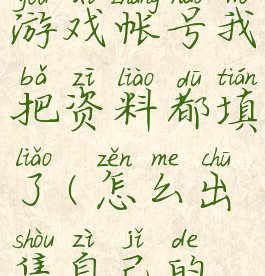 yóu xì zhàng hào wǒ
游戏帐号我
bǎ zī liào dū tián
把资料都填
liǎo zěn me chū
了(怎么出
shòu zì jǐ de
售自己的